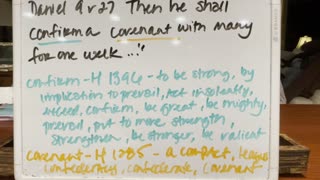 Daniel 9 v 27 Then he shall
confirm a covenant with many
for one week..."
confirm - H 1396 - to be strong, by
implication to prevail, act insolently,
exceed, confirm, be great, be mighty,
prevail, put to more strength,
strengthen, be stronger, be valient
covenant - H 1285 - a compact, league
confederacy, confederate, covenant